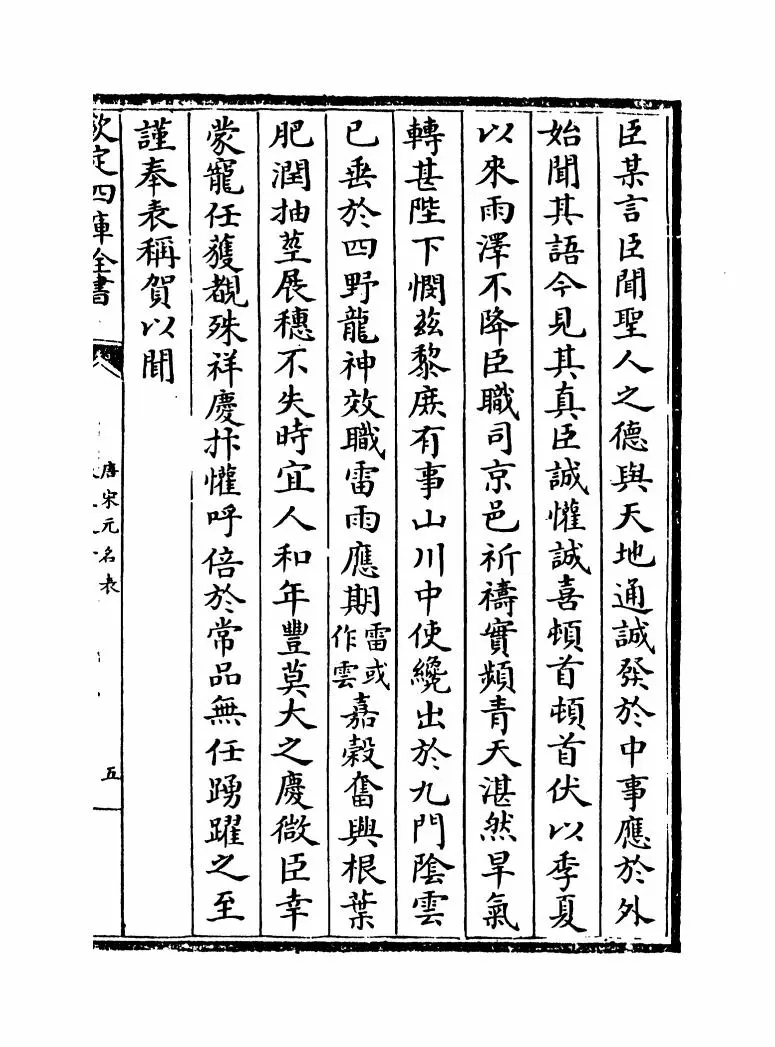 臣某言臣聞聖人之德與天地通誠發於中事應於外
始聞其語今見其真臣誠懽誠喜頓首頓首伏以季夏
以來雨澤不降臣職司京邑祈禱實頻青天湛然旱氣
轉甚陛下憫兹黎庶有事山川中使纔出於九門陰雲
已垂於四野龍神效職雷雨應期雷或作雲嘉榖奮興根葉
肥潤抽莖展穗不失時宜人和年豐莫大之慶微臣幸
蒙寵任獲覩殊祥慶抃懽呼倍於常品無任踴躍之至
謹奉表稱賀以聞
欽定四庫全書
唐宋元名表
五